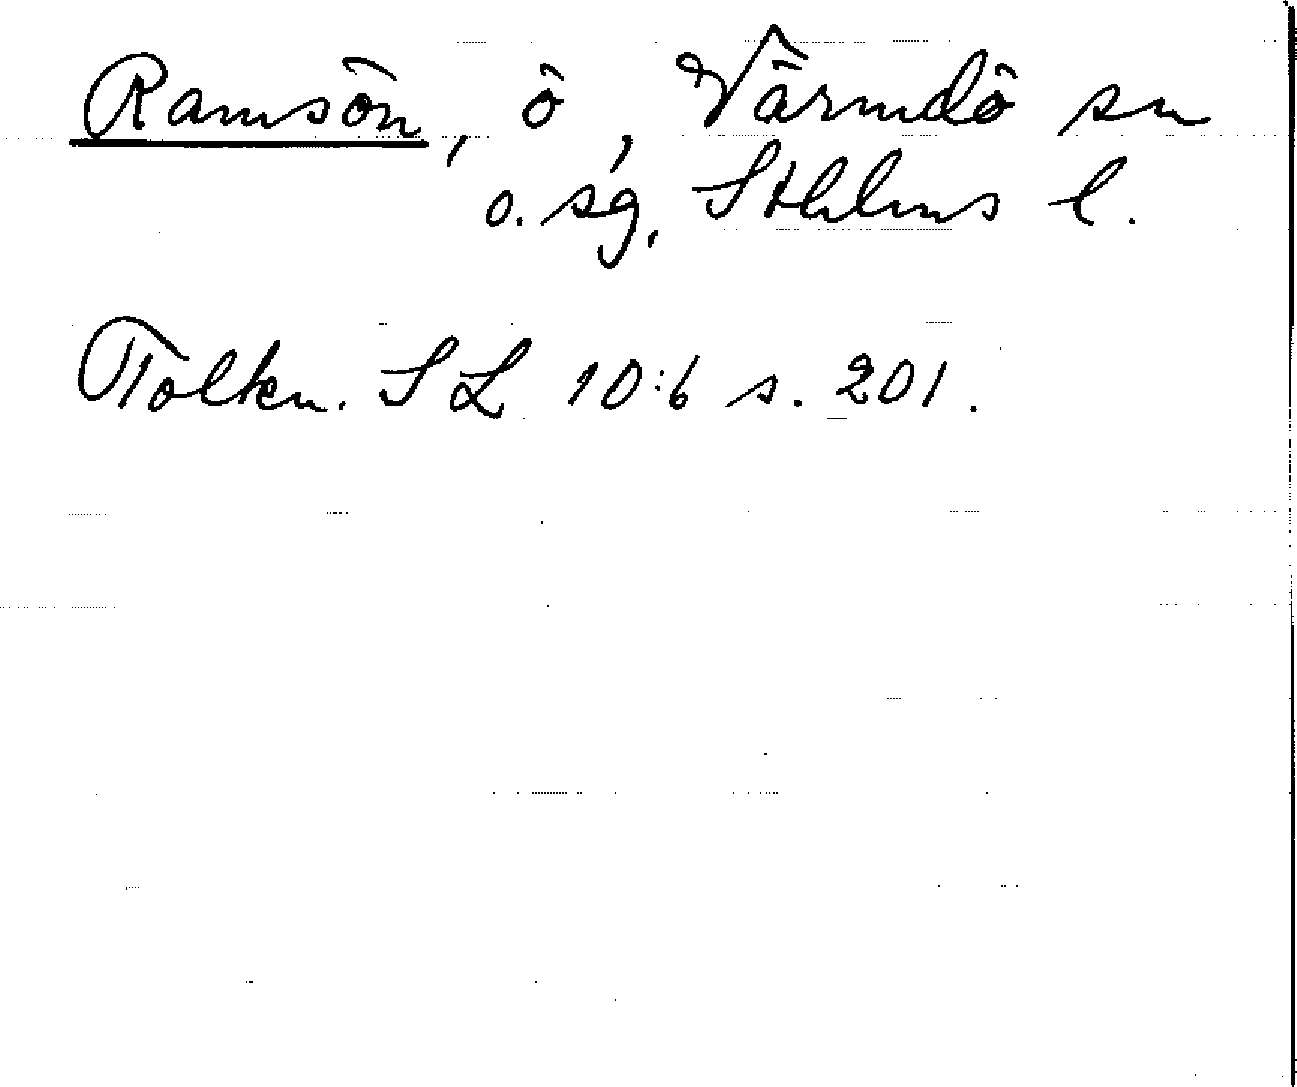 Ramsön, ö, Värmdö sn
o. sg, Sthlms l.
Tolkn. SL 10:6 s. 201.